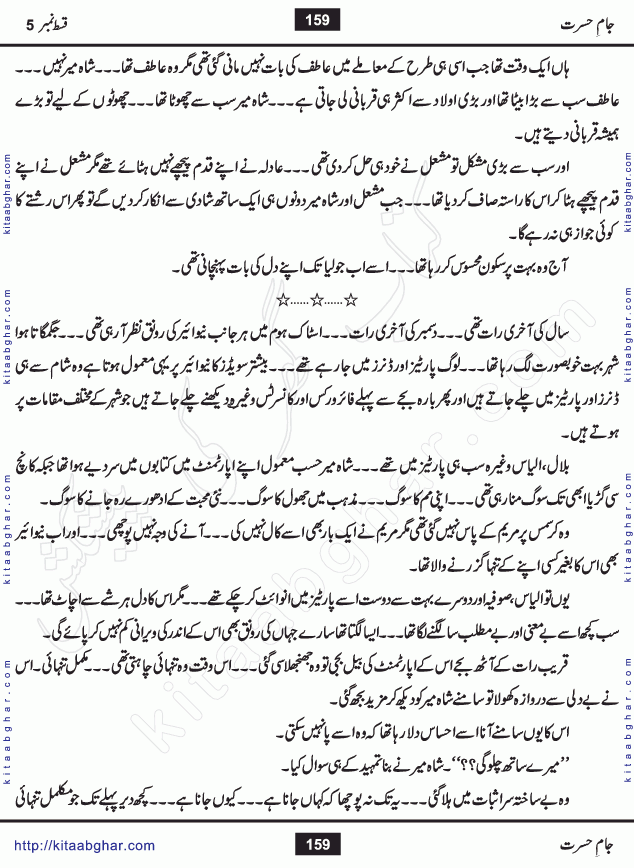 جامِ حسرت 159 قسط نمبر 5
ہاں ایک وقت تھا جب اسی ہی طرح کے معاملے میں عاطف کی بات نہیں مانی گئی تھی مگر وہ عاطف تھا۔۔۔شاہ میر نہیں۔۔۔
عاطف سب سے بڑا بیٹا تھا اور بڑی اولاد سے اکثر ہی قربانی لی جاتی ہے۔۔۔شاہ میر سب سے چھوٹا تھا۔۔۔چھوٹوں کے لیے تو بڑے
ہمیشہ قربانی دیتے ہیں۔
اور سب سے بڑی مشکل تو مشعل نے خود ہی حل کر دی تھی۔۔۔عادلہ نے اپنے قدم پیچھے نہیں ہٹائے تھے مگر مشعل نے اپنے
قدم پیچھے ہٹا کر اس کا راستہ صاف کر دیا تھا۔۔۔جب مشعل اور شاہ میر دونوں ہی ایک ساتھ شادی سے انکار کر دیں گے تو پھر اس رشتے کا
کوئی جواز ہی نہ رہے گا۔
آج وہ بہت پر سکون محسوس کر رہا تھا۔۔۔اسے اب جولیا تک اپنے دل کی بات پہنچانی تھی۔
☆......☆......☆
سال کی آخری رات تھی۔۔۔دسمبر کی آخری رات۔۔۔اسٹاک ہوم میں ہر جانب نیوائیر کی رونق نظر آ رہی تھی۔۔۔جگمگاتا ہوا
شہر بہت خوبصورت لگ رہا تھا۔۔۔لوگ پارٹیز اور ڈنرز میں جا رہے تھے۔۔۔بیشتر سویڈز کا نیوائیر پر یہی معمول ہوتا ہے وہ شام سے ہی
ڈنرز اور پارٹیز میں چلے جاتے ہیں اور پھر بارہ بجے سے پہلے فائر ورکس اور کانسرٹس وغیرہ دیکھنے چلے جاتے ہیں جو شہر کے مختلف مقامات پر
ہوتے ہیں۔
بلال، الیاس وغیرہ سب ہی پارٹیز میں تھے۔۔۔شاہ میر حسب معمول اپنے اپارٹمنٹ میں کتابوں میں سر دیے ہوا تھا جبکہ کانچ
سی گڑیا ابھی تک سوگ منا رہی تھی۔۔۔اپنی مم کا سوگ۔۔۔مذہب میں جھول کا سوگ۔۔۔نئی محبت کے ادھورے رہ جانے کا سوگ۔
وہ کرسمس پر مریم کے پاس نہیں گئی تھی مگر مریم نے ایک بار بھی اسے کال نہیں کی۔۔۔آنے کی وجہ نہیں پوچھی۔۔۔اور اب نیوائیر
بھی اس کا بغیر کسی اپنے کے تنہا گزرنے والا تھا۔
یوں تو الیاس، صوفیہ اور دوسرے بہت سے دوست اسے پارٹیز میں انوائٹ کر چکے تھے۔۔۔مگر اس کا دل ہر شے سے اچاٹ تھا۔۔۔
سب کچھ اسے بے معنی اور بے مطلب سا لگنے لگا تھا۔۔۔ایسا لگتا تھا سارے جہاں کی رونق بھی اس کے اندر کی ویرانی کم نہیں کر پائے گی۔
قریب رات کے آٹھ بجے اس کے اپارٹمنٹ کی بیل بجی تو وہ جھنجھلا سی گئی۔۔۔اس وقت وہ تنہائی چاہتی تھی۔۔۔مکمل تنہائی۔ اس
نے بے دلی سے دروازہ کھولا تو سامنے شاہ میر کو دیکھ کر مزید بجھ گئی۔
اس کا یوں سامنے آنا اسے احساس دلا رہا تھا کہ وہ اسے پا نہیں سکتی۔
”میرے ساتھ چلو گی؟؟“۔ شاہ میر نے بنا تمہید کے ہی سوال کیا۔
وہ بے ساختہ سر اثبات میں ہلا گئی۔۔۔یہ تک نہ پوچھا کہ کہاں جانا ہے۔۔۔کیوں جانا ہے۔۔۔کچھ دیر پہلے تک جو مکمل تنہائی
جامِ حسرت 159 http://kitaabghar.com
kitaabghar.com
kitaabghar.com
kitaabghar.com
kitaabghar.com
kitaabghar.com
kitaabghar.com
kitaabghar.com
kitaabghar.com
کتاب گھر کی پیشکش
kitaabghar.com